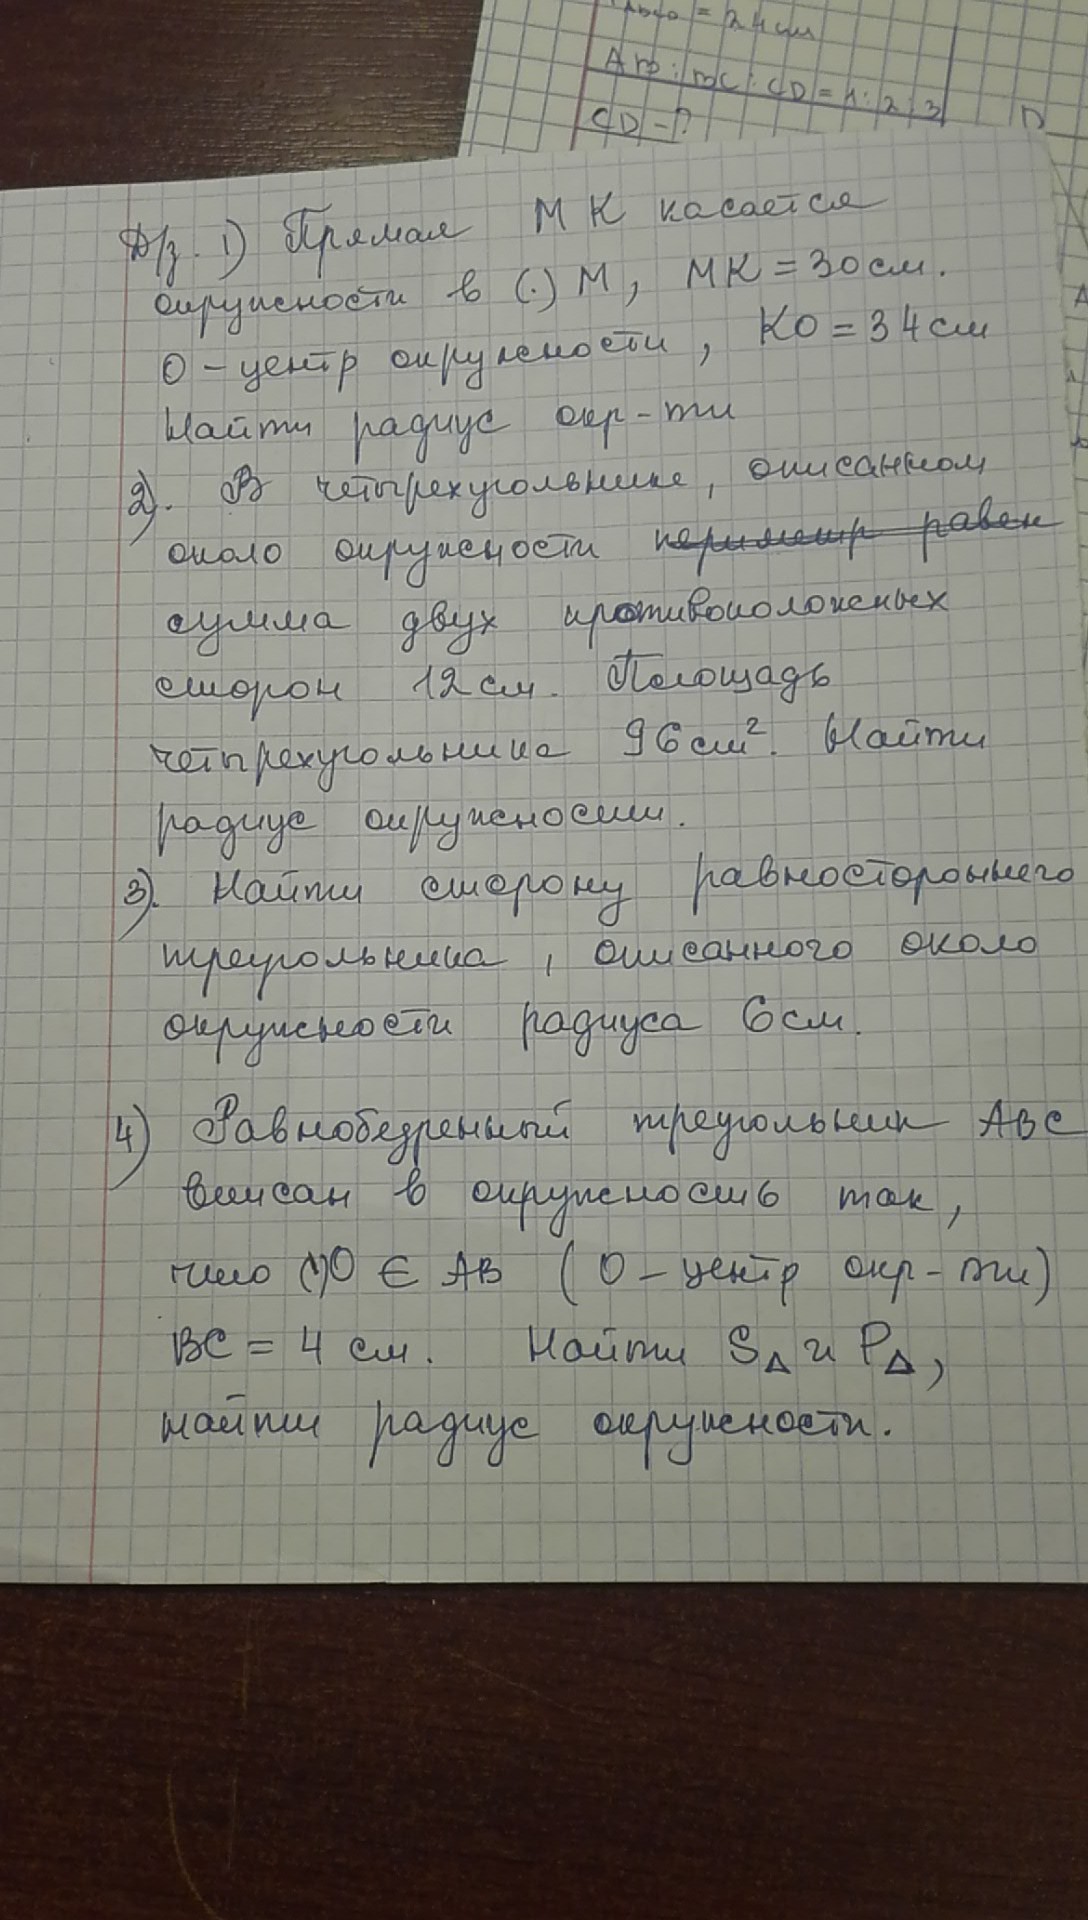 = 24 см
AB : BC : CD = 1 : 2 : 3
CD - ?
D
Д/з. 1) Прямая МК касается
окружности в (·) М, МК = 30 см.
О – центр окружности, КО = 34 см
Найти радиус окр-ти
2). В четырехугольнике, описанном
около окружности периметр равен
сумма двух противоположных
сторон 12 см. Площадь
четырехугольника 96 см². Найти
радиус окружности.
3). Найти сторону равностороннего
треугольника, описанного около
окружности радиуса 6 см.
4) Равнобедренный треугольник АВС
вписан в окружность так,
что (·)О ∈ АВ (О – центр окр-ти)
ВС = 4 см. Найти S△ и P△,
найти радиус окружности.